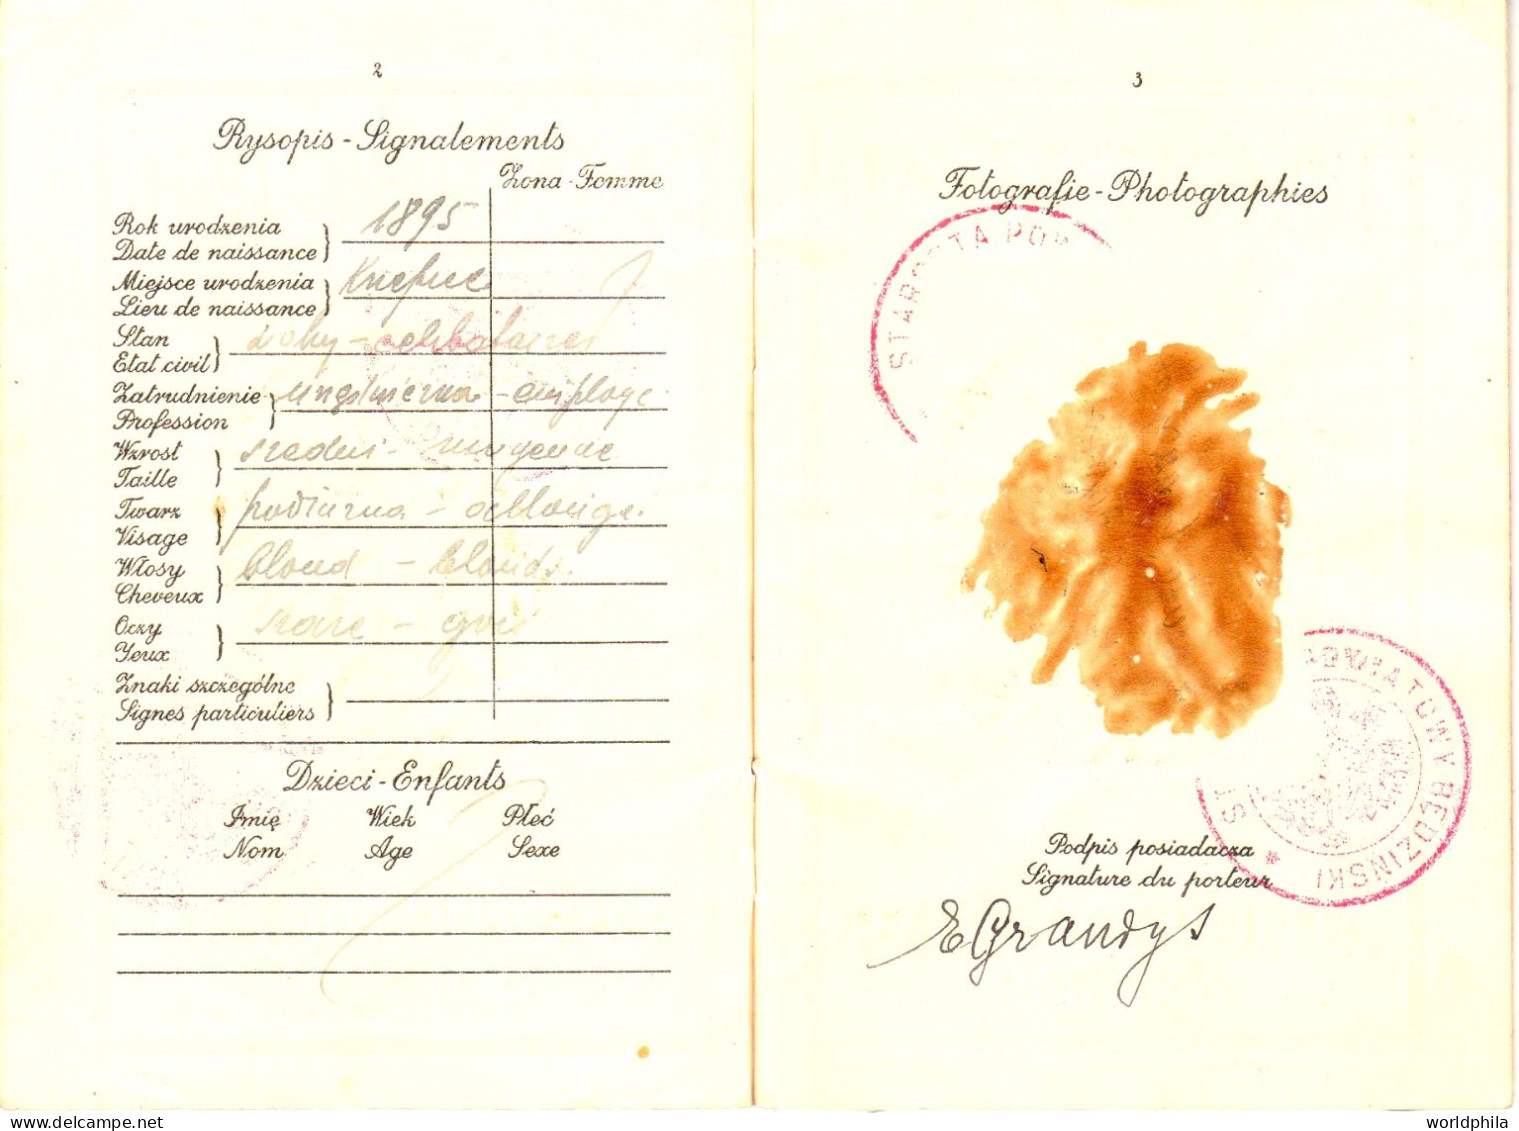 2
Rysopis - Signalements
Żona - Femme
Rok urodzenia
Date de naissance
1895
Miejsce urodzenia
Lieu de naissance
Stan
Etat civil
Zatrudnienie
Profession
employe
Wzrost
Taille
średni -
Twarz
Visage
Włosy
Cheveux
blond - blonds.
Oczy
Yeux
szare - gris
Znaki szczególne
Signes particuliers
Dzieci - Enfants
Imię Wiek Płeć
Nom Age Sexe
3
Fotografie - Photographies
STAROSTA POW
ST
WIATOWY BĘDZIŃSKI *
Podpis posiadacza
Signature du porteur
EGrandys
worldphila